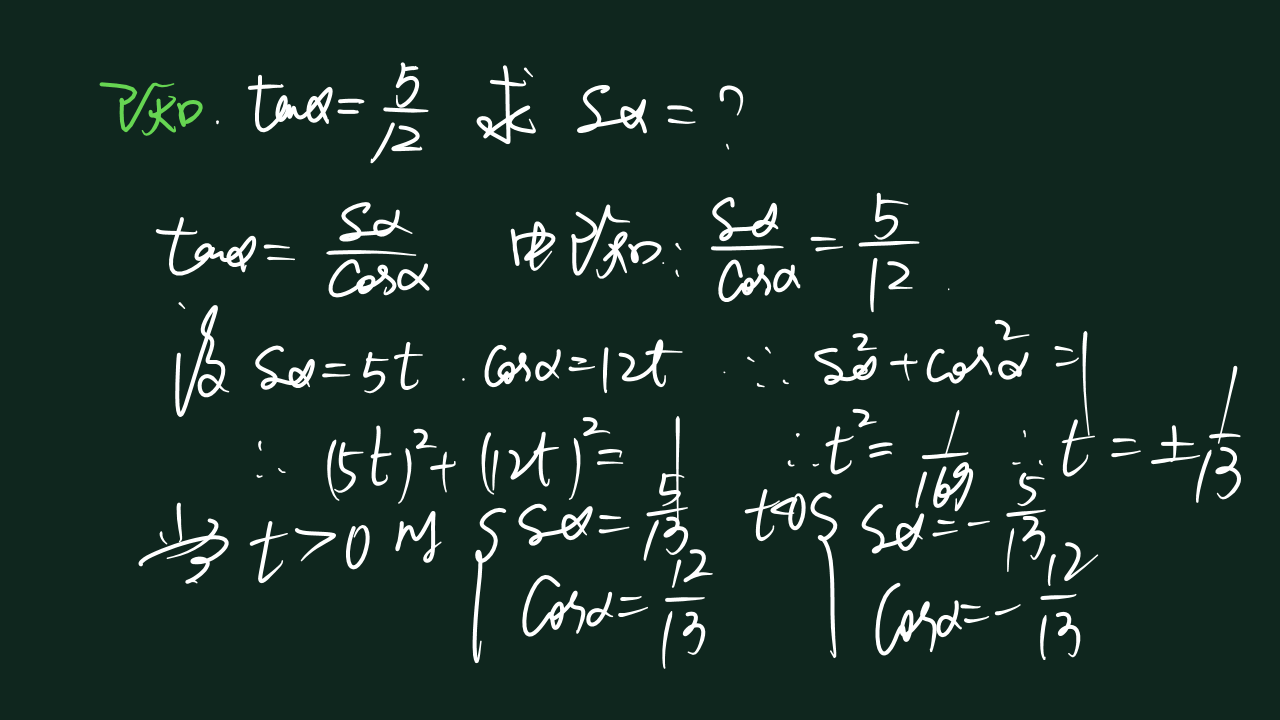 已知. tanα = 5/12 求 Sα = ?
tanα = Sα/cosα 由已知: Sα/cosα = 5/12
设 Sα = 5t. cosα = 12t ∵ S²α + cos²α = 1
∴ (5t)² + (12t)² = 1 ∴ t² = 1/169 ∴ t = ± 1/13
当 t > 0 时 { Sα = 5/13 t<0 { Sα = - 5/13
cosα = 12/13 cosα = - 12/13